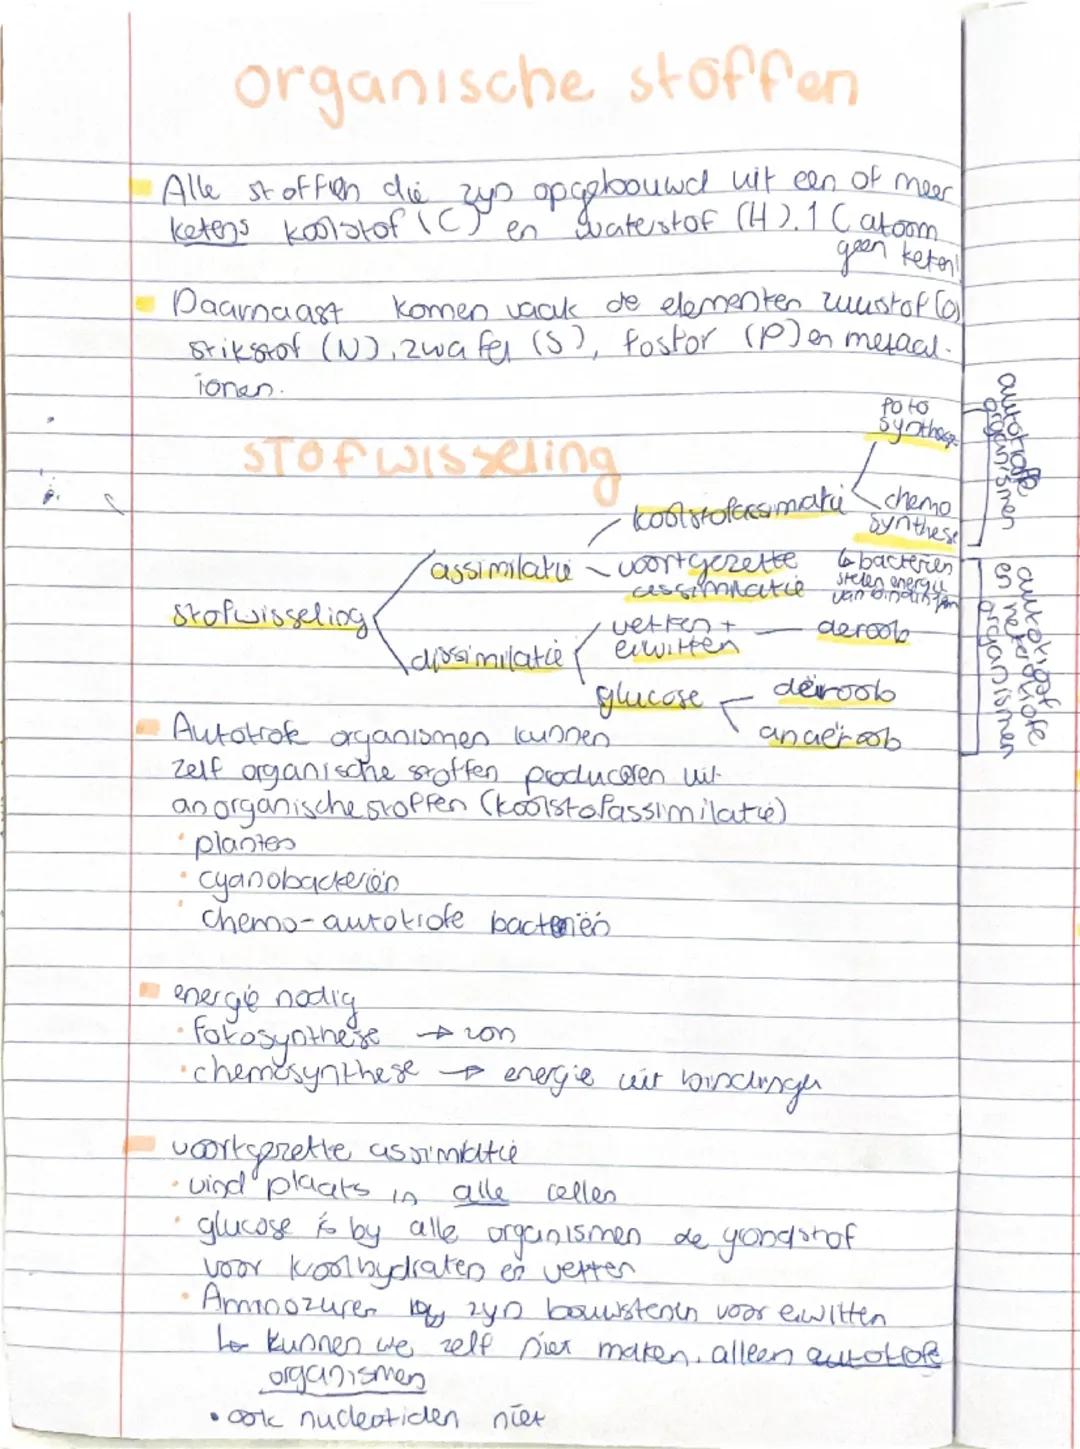 organische stoffen
Alle stoffen die zijn opgebouwd uit een of meer
ketens koolstof (C) en waterstof (H). 1 C atoom
geen keten!
Daarnaast komen vaak de elementen zuurstof (O)
stikstof (N), zwafel (S), fosfor (P) en metaal-
ionen.
STOFWISSELING
foto
synthese
koolstofassimatie
chemo
synthese
assimilatie
voortgezette
assimilatie
↳ bacteriën
stelen energie
van bindingen
stofwisseling
dissimilatie
vetten +
eiwitten
aeroob
glucose
aëroob
anaëroob
autotrofe
organismen
autotroof
& heterotrofe
organismen
Autotrofe organismen kunnen
zelf organische stoffen produceren uit
anorganische stoffen (koolstofassimilatie)
• planten
• cyanobacteriën
• chemo-autotrofe bacteriën
energie nodig
• fotosynthese → zon
• chemosynthese → energie uit bindingen
voortgezette assimilatie
• vind plaats in alle cellen
• glucose is bij alle organismen de grondstof
voor koolhydraten en vetten
• Aminozuren zijn bouwstenen voor eiwitten
↳ kunnen we zelf niet maken, alleen autotrofe
organismen
• ook nucleotiden niet